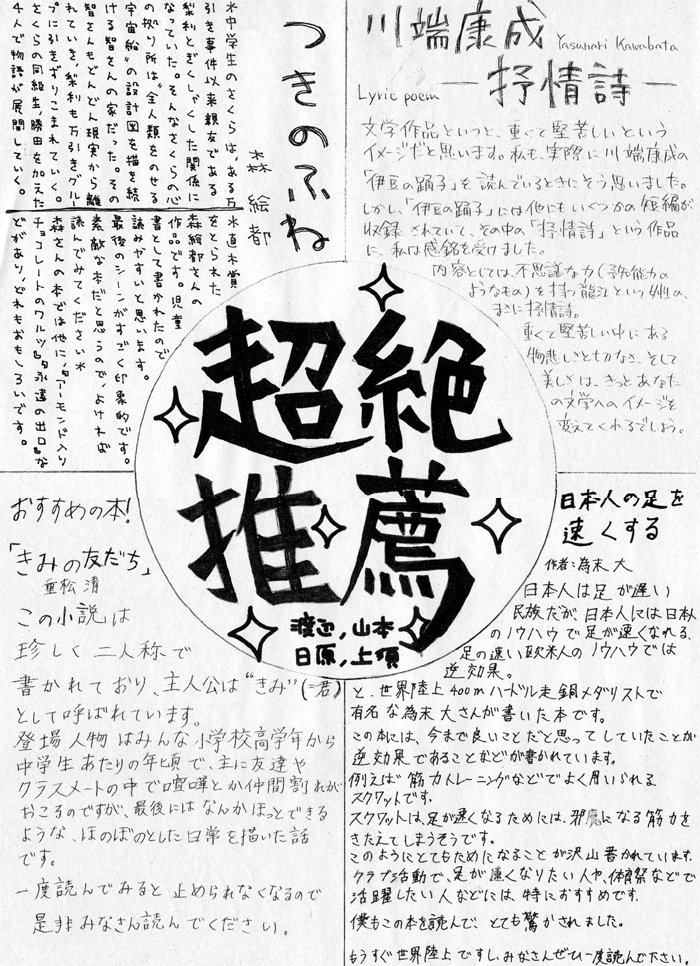 つきのふね
森 絵都
*中学生のさくらは、ある万
引き事件以来親友である
梨利とぎくしゃくした関係に
なっていた。そんなさくらの心
の拠り所は“全人類をのせる
宇宙船”の設計図を描き続
ける智さんの家だった。その
智さんもどんどん現実から離
れていき、梨利も万引きグルー
プに引きずりこまれていく。
さくらの同級生勝田を加えた
4人で物語が展開していく。
*直木賞
をとられた
森絵都さんの
作品です。児童
書として書かれたので
読みやすいと思います。
最後のシーンがすごく印象的です。
素敵な本だと思うので、よければ
読んでみてください*
森さんの本では他に、『アーモンド入り
チョコレートのワルツ』、『永遠の出口』な
どがあり、どれもおもしろいです。
川端康成 Yasunari Kawabata
Lyric poem ー抒情詩ー
文学作品というと、重くて堅苦しいという
イメージだと思います。私も、実際に川端康成の
「伊豆の踊子」を読んでいるときにそう思いました。
しかし、「伊豆の踊子」には他にもいくつかの短編が
収録されていて、その中の「抒情詩」という作品
に、私は感銘を受けました。
内容としては不思議な力(予知能力の
ようなもの)を持つ龍江という女性の、
まさに抒情詩。
重くて堅苦しい中にある
物悲しさと切なさ、そして
美しさは、きっとあなた
の文学へのイメージを
変えてくれるでしょう。
超絶
推薦
渡辺,山本
日原,上須
おすすめの本!
「きみの友だち」
重松 清
この小説は
珍しく二人称で
書かれており、主人公は“きみ”(君)
として呼ばれています。
登場人物はみんな小学校高学年から
中学生あたりの年頃で、主に友達や
クラスメートの中で喧嘩とか仲間割れが
おこるのですが、最後にはなんかほっとできる
ような、ほのぼのとした日常を描いた話
です。
一度読んでみると止められなくなるので
是非みなさん読んでください。
日本人の足を
速くする
作者:為末 大
日本人は足が遅い
民族だが、日本人には日本人
のノウハウで足が速くなれる、
足の速い欧米人のノウハウでは
逆効果。
と、世界陸上400mハードル走銅メダリストで
有名な為末大さんが書いた本です。
この本には、今まで良いことだと思ってしていたことが
逆効果であることなどが書かれています。
例えば筋力トレーニングなどでよく用いられる
スクワットです。
スクワットは、足が速くなるためには、邪魔になる筋力を
きたえてしまうそうです。
このようにとてもためになることが沢山書かれています。
クラブ活動で、足が速くなりたい人や、体育祭などで
活躍したい人などには、特におすすめです。
僕もこの本を読んで、とても驚かされました。
もうすぐ世界陸上ですし、みなさんぜひ一度読んで下さい。